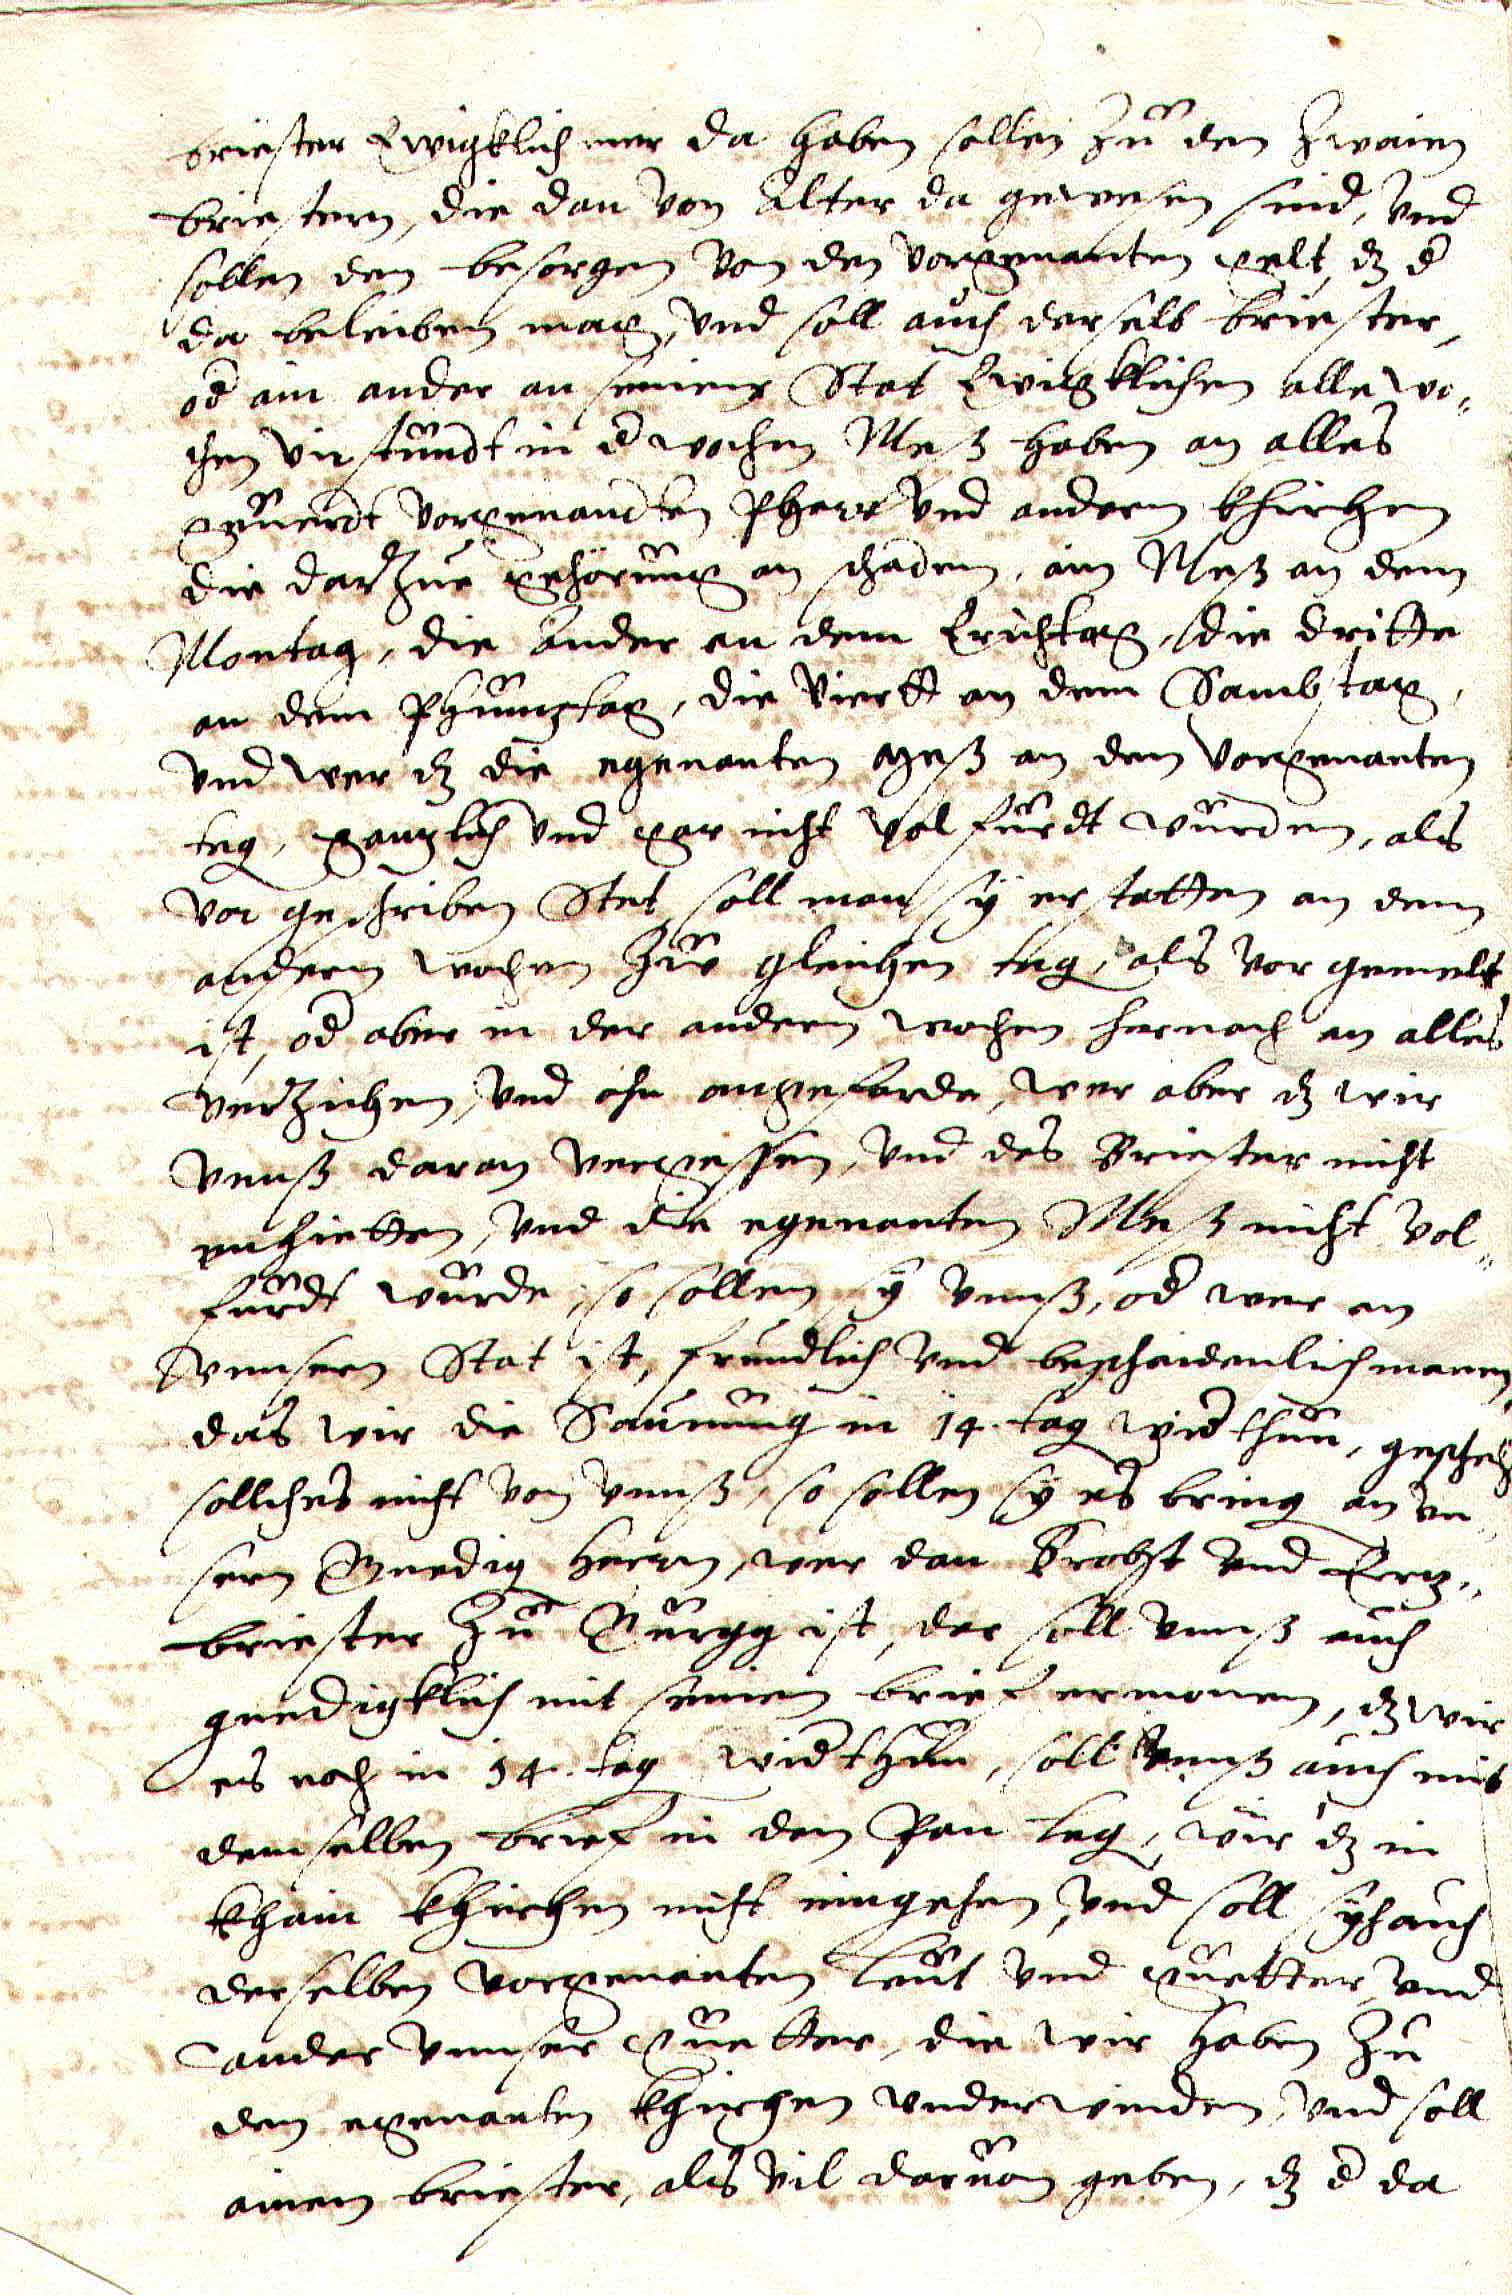 briester Ewigklich mer da haben sollen zu den zwaien
briestern, die dan von alter da gewesen sind, vnd
sollen den besorgen von den vorgenanten gelt, dz d
da beleiben mag, vnd soll auch derselb briester,
od ain ander an seiner Stat Ewigklichen alle wo¬
chen vir stundt in d wochen Meß haben an alles
geuerdt vorgenandten Pharr vnd andern khirchen
die darzue gehörung an schaden, ain Meß an dem
Montag, die ander an dem Erichtag, die dritte
an dem Phünztag, die Viertt an dem Sambstag,
vnd wer dz die egenanten meß an den vorgenanten
tag, ganzlich vnd gar nicht vol fürdt würden, als
vor geschriben Stet, soll man sy erstatten an dem
andern wochen zw gleichen tag, als vor gemelt
ist, od aber in der andern wochen hernach an alles
verzichen, vnd ohn ongeforde, wer aber dz wir
vnnß daran vergessen, vnd des Briester nicht
enhietten, vnd die egenanten Meß nicht vol¬
fürdt würde, so sollen sy vnnß, od wer an
vnnsern Stat ist, fründlich vnd beschaidenlich manen,
das wir die Saumung in 14. tag wid thun, geschech
sollches nicht von vnnß, so sollen sy es bring an vn¬
sern Gnedig herrn, wer dan Brobst vnd Erz¬
briester zu Gurgg ist, der soll vnnß auch
gnedigklich mit seinem brief ermonen, dz wir
es noch in 14. tag wid thun, soll vnnß auch mit
demselben brief in den Pan leg, wür dz in
khain khirchen nicht eingehen, vnd soll sych auch
derselben vorgenanten leut vnd guetter, vnd
ander vnnser guetter, die wir haben zu
den egenanten khirchen vnderwinden, vnd soll
ainem briester, als vil daruon geben, dz d da